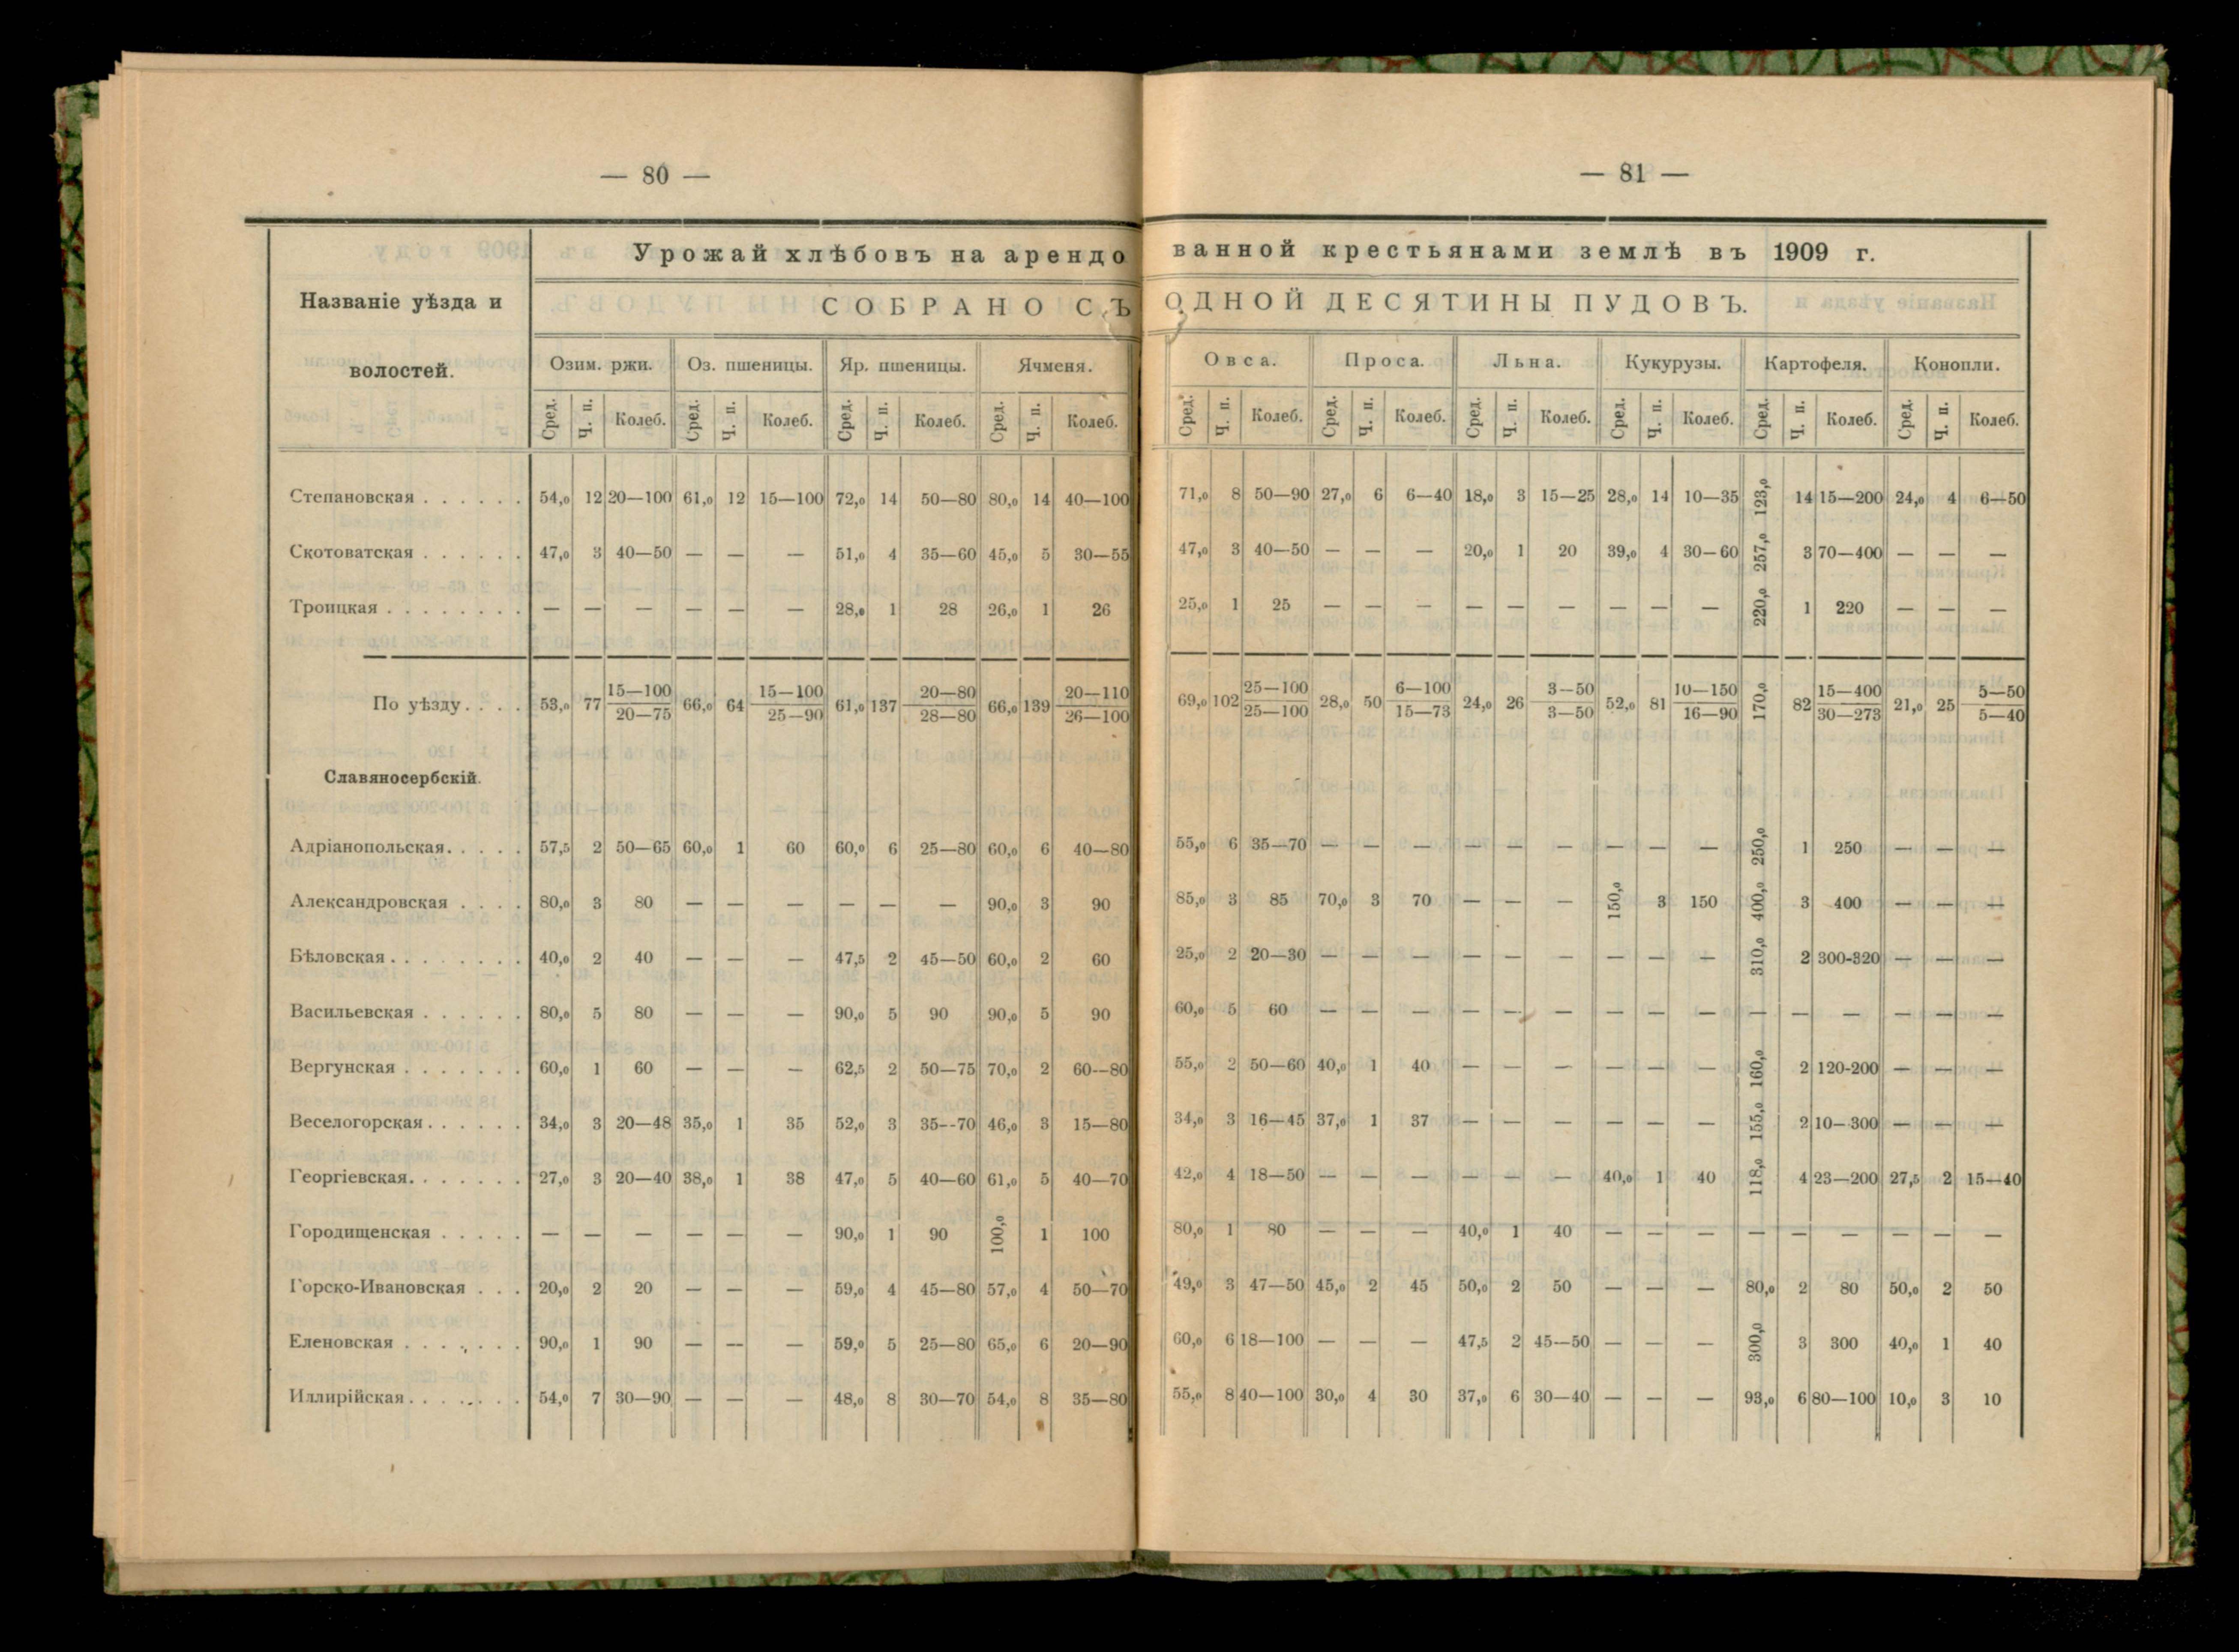 — 80 —
Названіе уѣзда и волостей.
Урожай хлѣбовъ на арендо
СОБРАНО СЪ
Озим. ржи. Оз. пшеницы. Яр. пшеницы. Ячменя.
Сред. Ч. п. Колеб. Сред. Ч. п. Колеб. Сред. Ч. п. Колеб. Сред. Ч. п. Колеб.
Степановская . . . . . . 54,0 12 20—100 61,0 12 15—100 72,0 14 50—80 80,0 14 40—100
Скотоватская . . . . . . 47,0 3 40—50 — — — 51,0 4 35—60 45,0 5 30—55
Троицкая . . . . . . . . — — — — — — 28,0 1 28 26,0 1 26
По уѣзду. . . . 53,0 77 15—100 20—75 66,0 64 15—100 25—90 61,0 137 20—80 28—80 66,0 139 20—110 26—100
Славяносербскій.
Адріанопольская. . . . . 57,5 2 50—65 60,0 1 60 60,0 6 25—80 60,0 6 40—80
Александровская . . . . 80,0 3 80 — — — — — — 90,0 3 90
Бѣловская . . . . . . . . 40,0 2 40 — — — 47,5 2 45—50 60,0 2 60
Васильевская . . . . . . 80,0 5 80 — — — 90,0 5 90 90,0 5 90
Вергунская . . . . . . . 60,0 1 60 — — — 62,5 2 50—75 70,0 2 60--80
Веселогорская . . . . . . 34,0 3 20—48 35,0 1 35 52,0 3 35--70 46,0 3 15—80
Георгіевская. . . . . . . 27,0 3 20—40 38,0 1 38 47,0 5 40—60 61,0 5 40—70
Городищенская . . . . . — — — — — — 90,0 1 90 100,0 1 100
Горско-Ивановская . . . 20,0 2 20 — — — 59,0 4 45—80 57,0 4 50—70
Еленовская . . . . . . . 90,0 1 90 — -- — 59,0 5 25—80 65,0 6 20—90
Иллирійская . . . . . . . 54,0 7 30—90 — — — 48,0 8 30—70 54,0 8 35—80
— 81 —
ванной крестьянами землѣ въ 1909 г.
ОДНОЙ ДЕСЯТИНЫ ПУДОВЪ.
Овса. Проса. Льна. Кукурузы. Картофеля. Конопли.
Сред. Ч. п. Колеб. Сред. Ч. п. Колеб. Сред. Ч. п. Колеб. Сред. Ч. п. Колеб. Сред. Ч. п. Колеб. Сред. Ч. п. Колеб.
71,0 8 50—90 27,0 6 6—40 18,0 3 15—25 28,0 14 10—35 123,0 14 15—200 24,0 4 6—50
47,0 3 40—50 — — — 20,0 1 20 39,0 4 30—60 257,0 3 70—400 — — —
25,0 1 25 — — — — — — — — — 220,0 1 220 — — —
69,0 102 25—100 25—100 28,0 50 6—100 15—73 24,0 26 3—50 3—50 52,0 81 10—150 16—90 170,0 82 15—400 30—273 21,0 25 5—50 5—40
55,0 6 35—70 — — — — — — — — — 250,0 1 250 — — —
85,0 3 85 70,0 3 70 — — — 150,0 3 150 400,0 3 400 — — —
25,0 2 20—30 — — — — — — — — — 310,0 2 300-320 — — —
60,0 5 60 — — — — — — — — — — — — — — —
55,0 2 50—60 40,0 1 40 — — — — — — 160,0 2 120-200 — — —
34,0 3 16—45 37,0 1 37 — — — — — — 155,0 2 10—300 — — —
42,0 4 18—50 — — — — — — 40,0 1 40 118,0 4 23—200 27,5 2 15—40
80,0 1 80 — — — 40,0 1 40 — — — — — — — — —
49,0 3 47—50 45,0 2 45 50,0 2 50 — — — 80,0 2 80 50,0 2 50
60,0 6 18—100 — — — 47,5 2 45—50 — — — 300,0 3 300 40,0 1 40
55,0 8 40—100 30,0 4 30 37,0 6 30—40 — — — 93,0 6 80—100 10,0 3 10